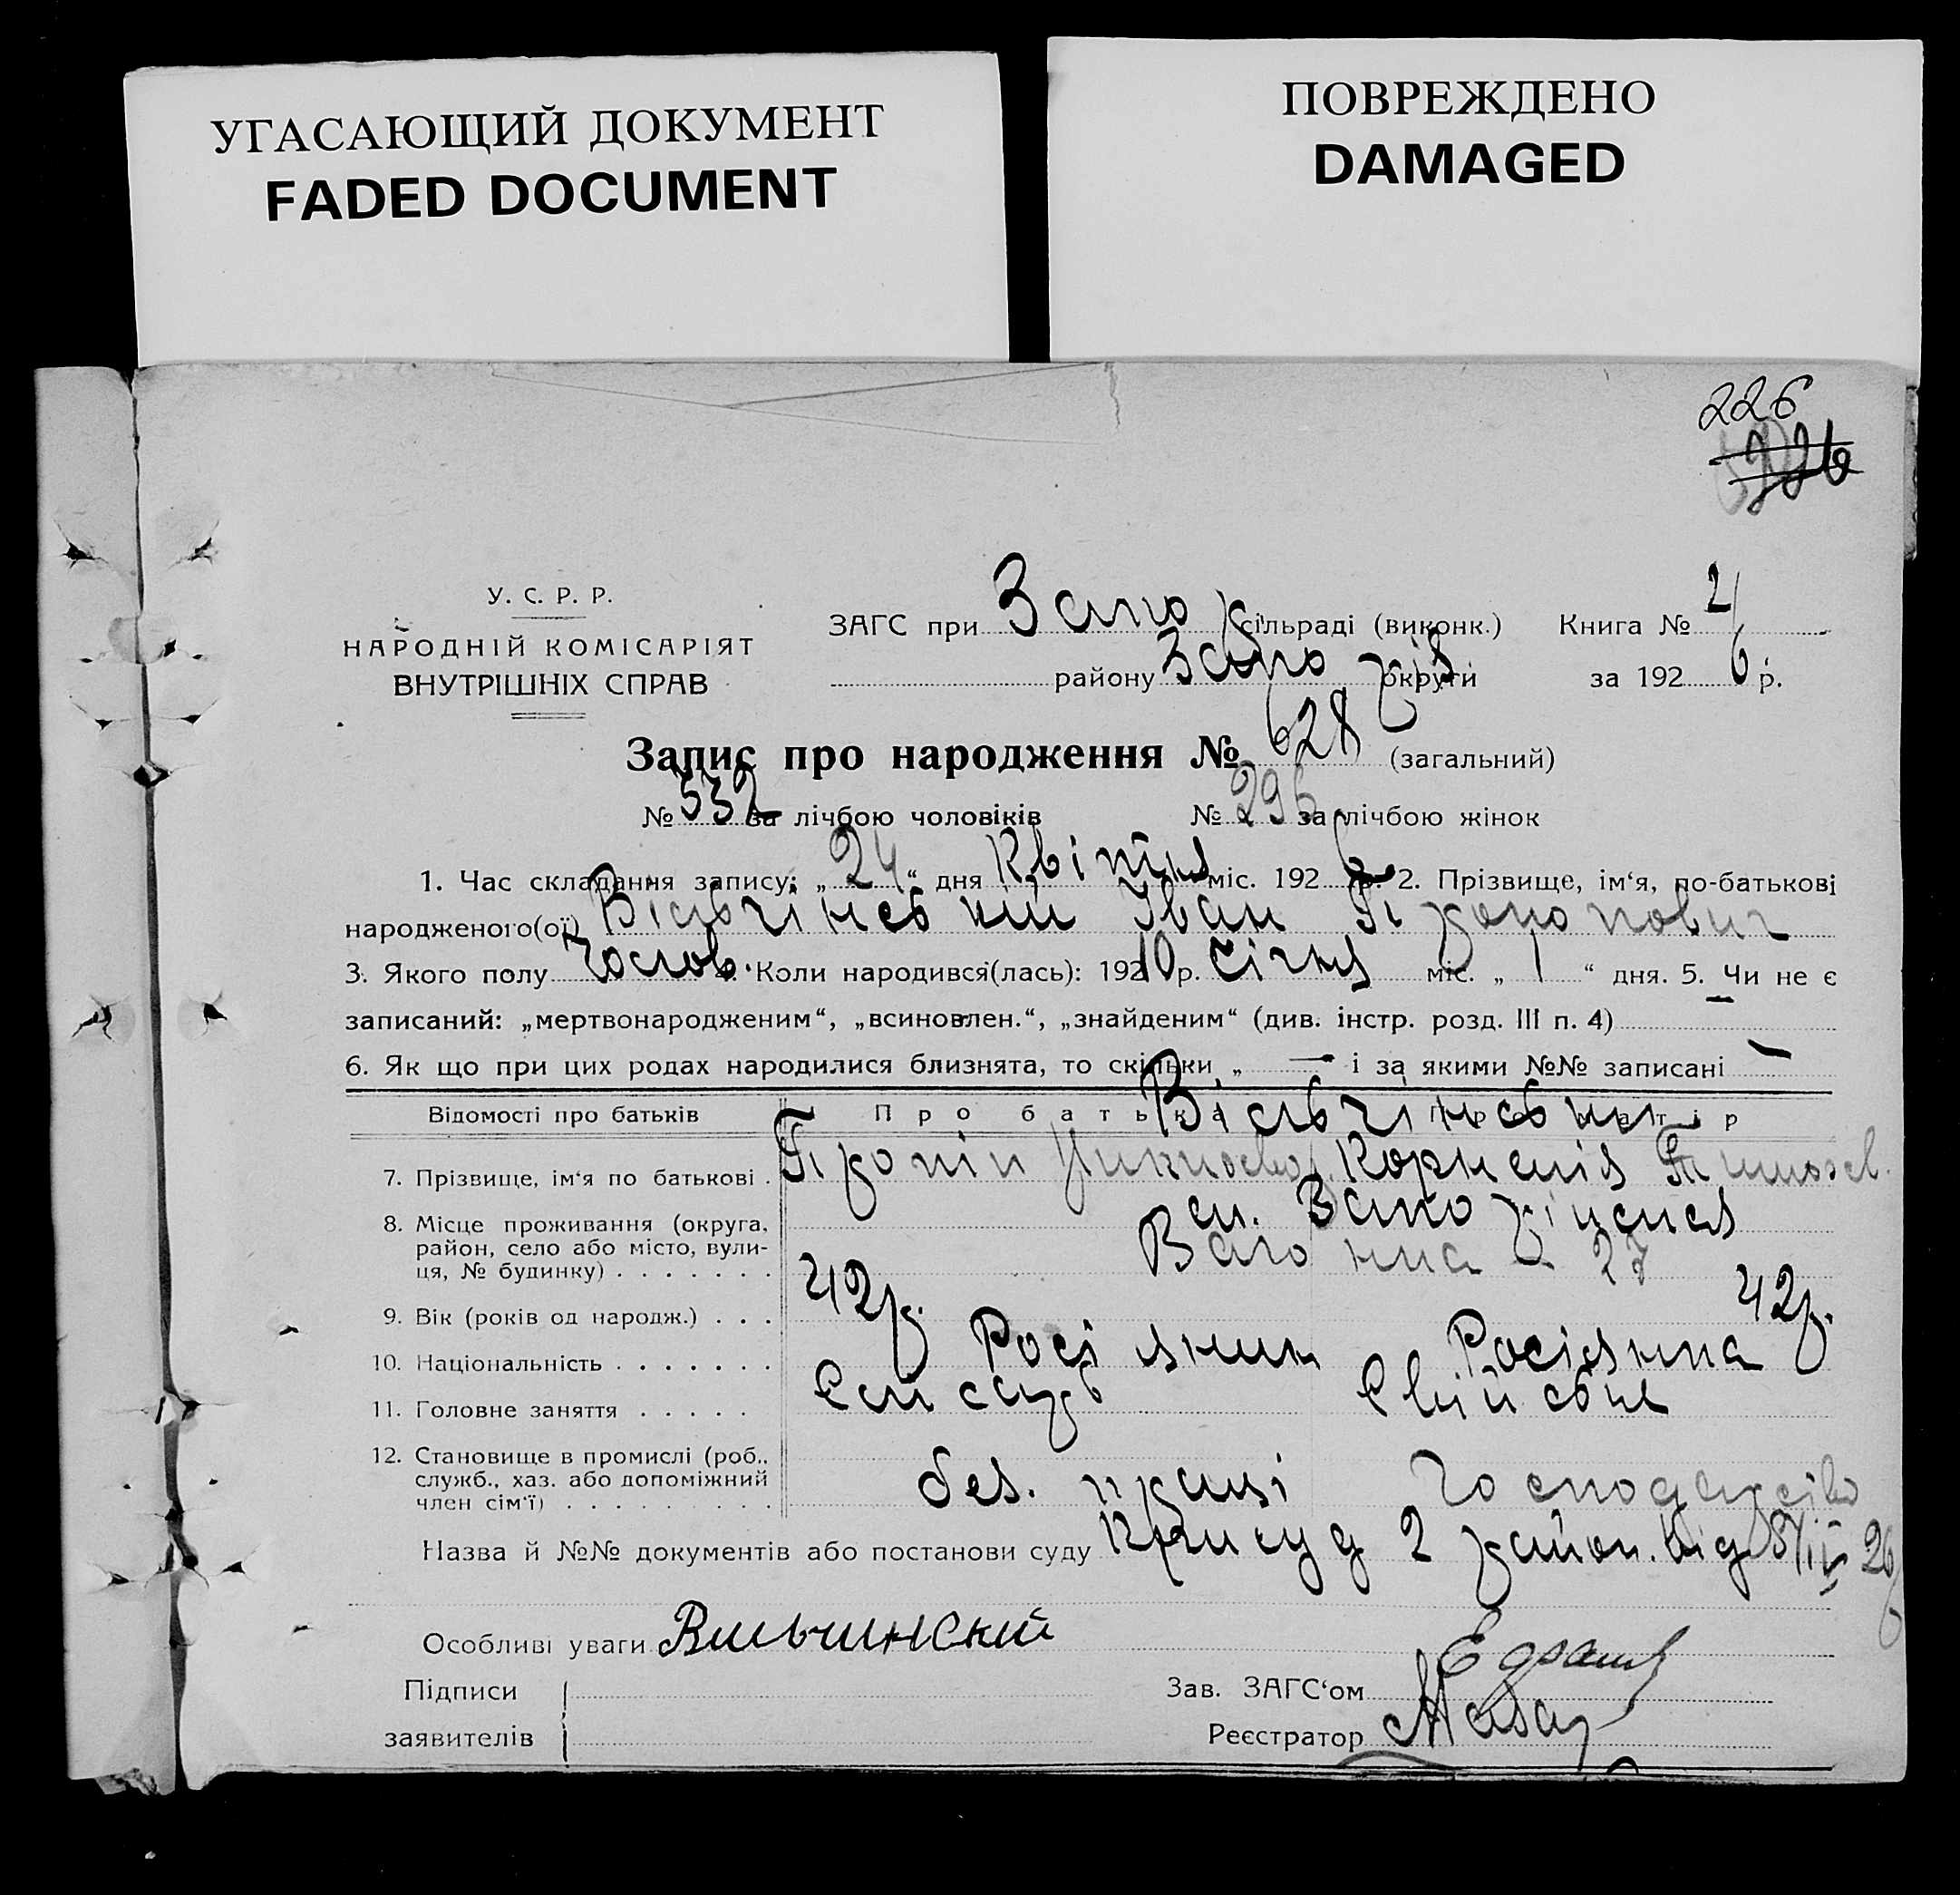 УГАСАЮЩИЙ ДОКУМЕНТ
FADED DOCUMENT
ПОВРЕЖДЕНО
DAMAGED
226
226
У. С. Р. Р.
НАРОДНІЙ КОМІСАРІЯТ
ВНУТРІШНІХ СПРАВ
ЗАГС при Запор сільраді (виконк.) Книга № 2
району Запоріз округи за 1926 р.
Запис про народження № 628 (загальний)
№ 332 за лічбою чоловіків № 296 за лічбою жінок
1. Час складання запису: „24“ дня Квітня міс. 1926 р. 2. Прізвище, ім‘я, по-батькові
народженого(ої) Вільчінський Іван Прокопович
3. Якого полу Чолов. 4. Коли народився(лась): 1910 р. Січня міс. „1“ дня. 5. Чи не є
записаний: „мертвонародженим“, „всиновлен.“, „знайденим“ (див. інстр. розд. III п. 4) —
6. Як що при цих родах народилися близнята, то скільки „ — і за якими №№ записані —
Відомості про батьків Про батька Про матір
Вільчінські
7. Прізвище, ім‘я по батькові . Прокіп Корнелія Тимохв.
8. Місце проживання (округа,
район, село або місто, вули-
ця, № будинку) . . . . . . .
ст. Запоріжжя
27
9. Вік (років од народж.) . . . 42р. 42р.
10. Національність . . . . . . . Росіянин Росіянка
11. Головне заняття . . . . .
12. Становище в промислі (роб.,
служб., хаз. або допоміжний
член сім‘ї) . . . . . . . . .
без. праці Господарство
Назва й №№ документів або постанови суду Присуд 2 район. від 5/IV 26
Особливі уваги Вильчинский
Підписи
заявителів
Зав. ЗАГС‘ом
Реєстратор